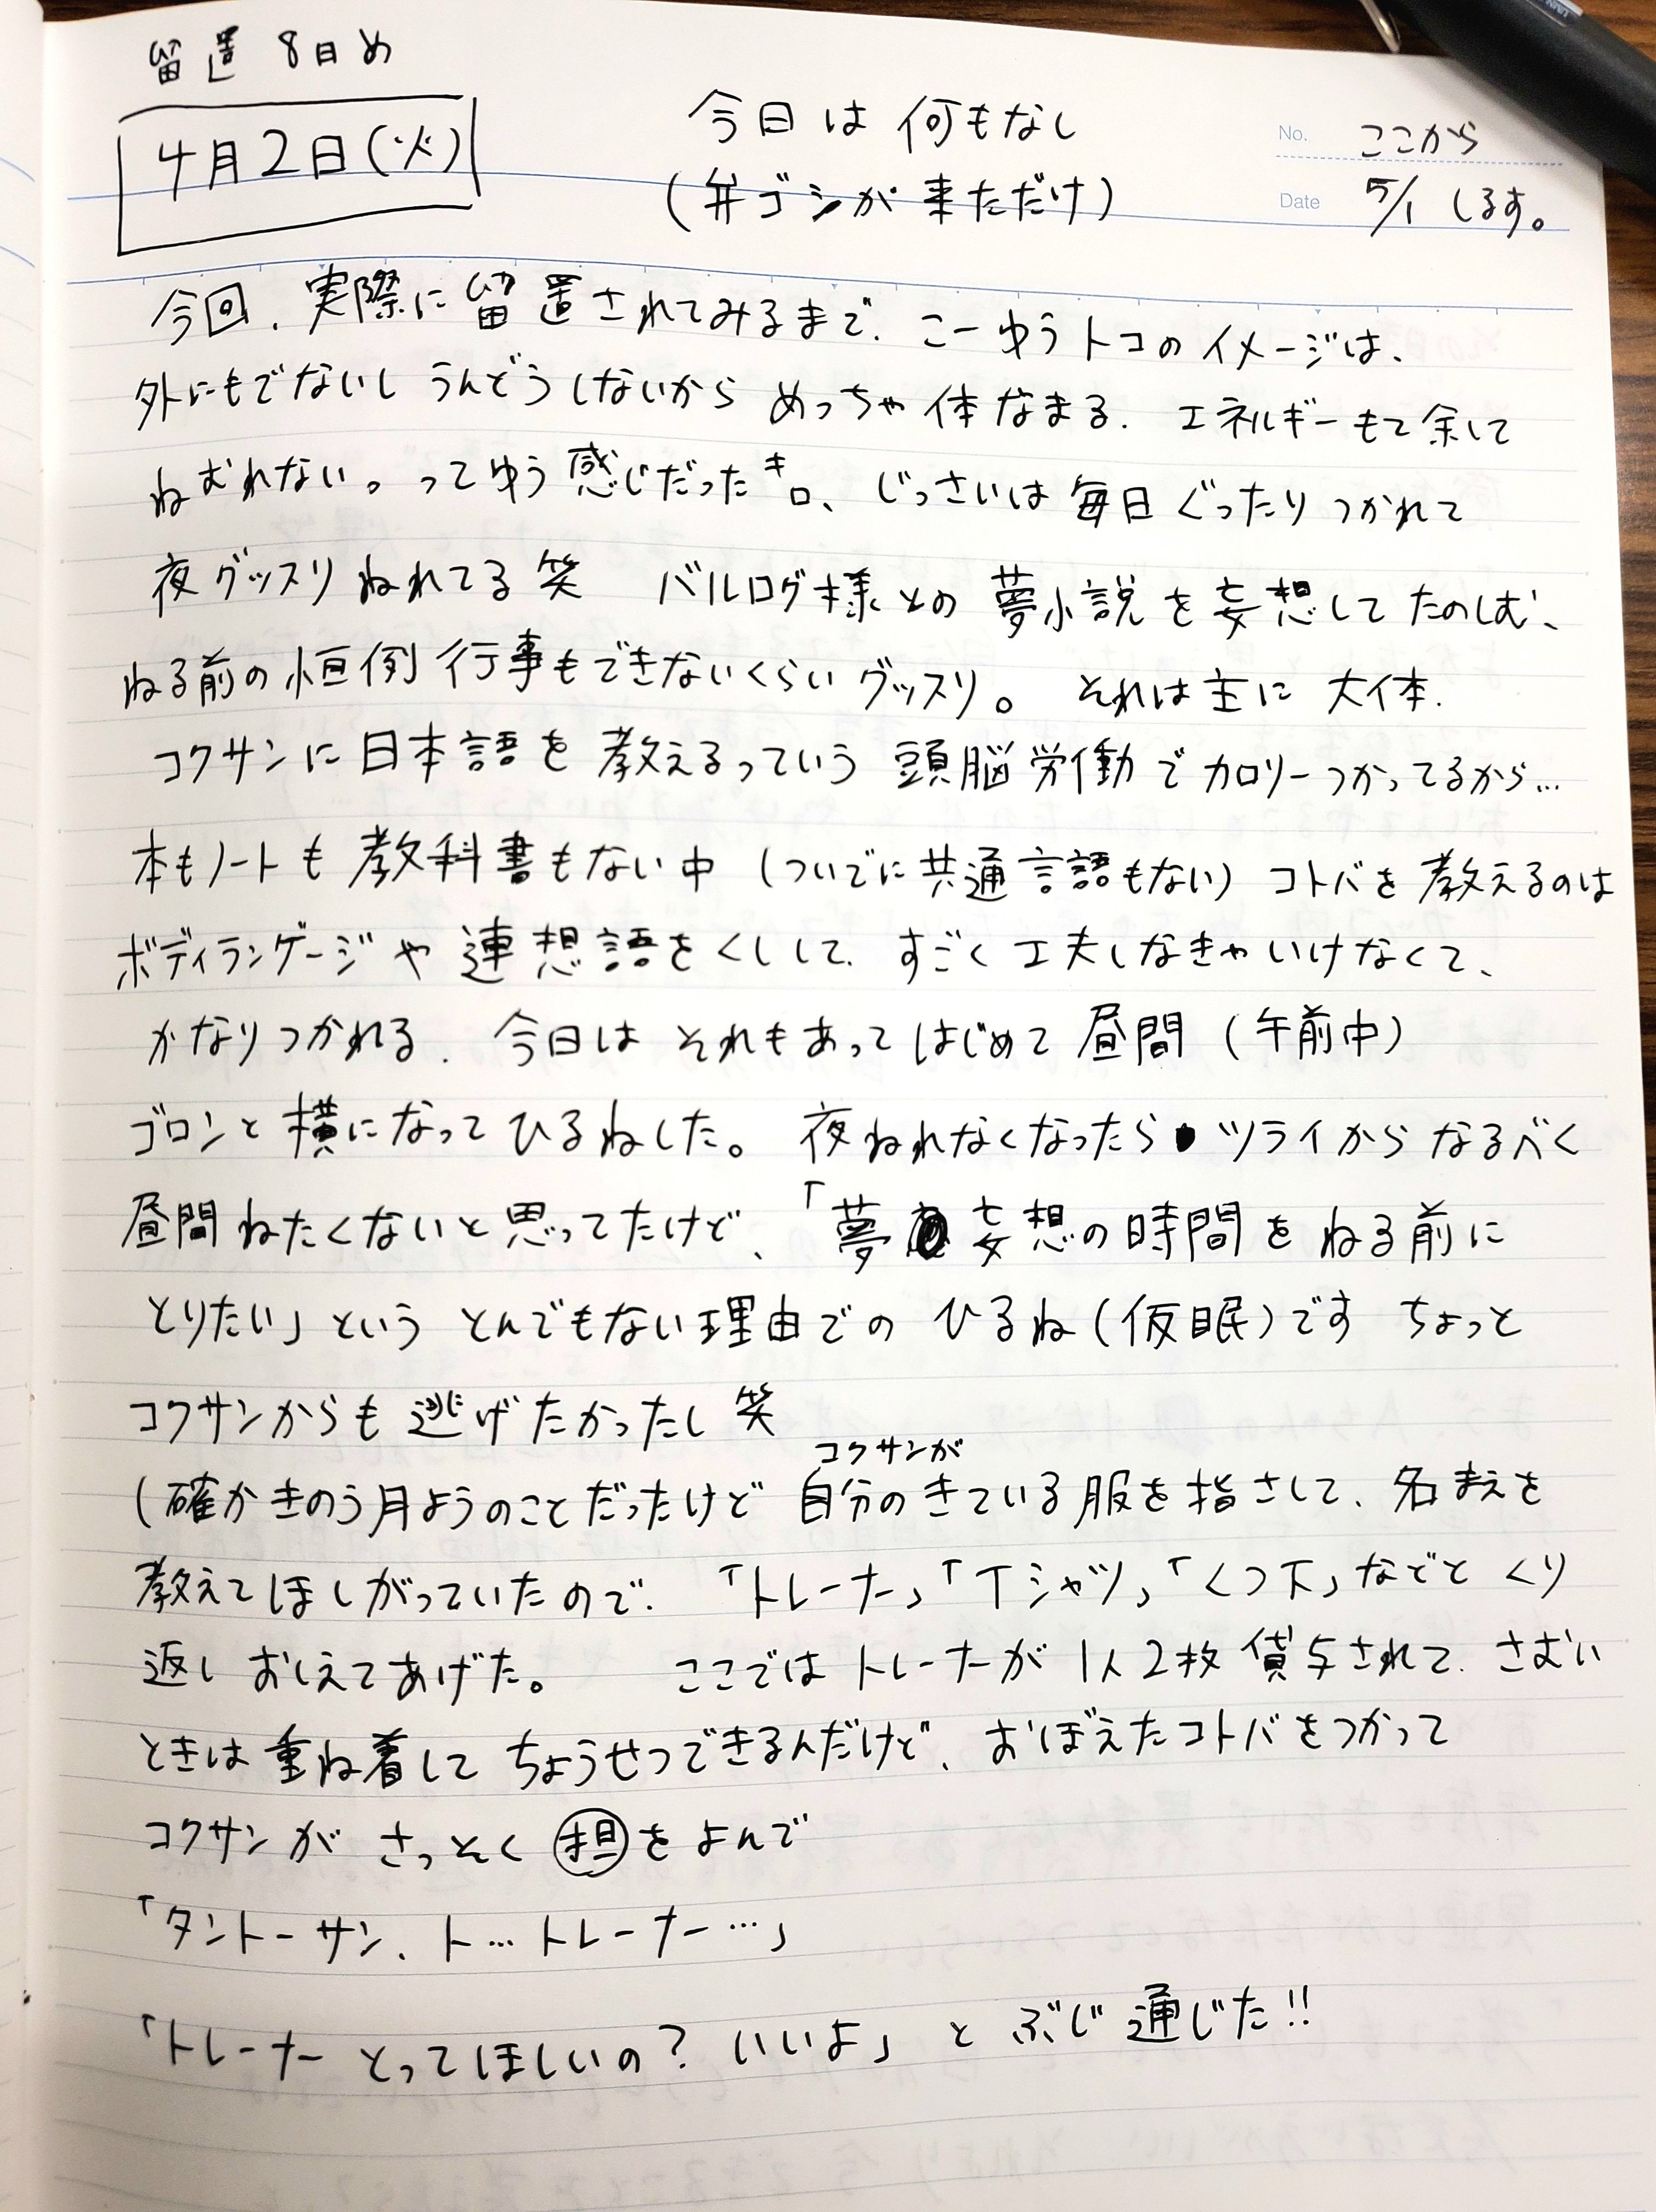 留置 8日め
4月2日(火)
今日は何もなし
(弁ゴシが来ただけ)
No. ここから
Date 5/1 しるす。
今回、実際に留置されてみるまで、こーゆうトコのイメージは、
外にもでないし うんどうしないから めっちゃ体なまる、エネルギーもて余して
ねむれない。ってゆう感じだったけど、じっさいは毎日ぐったりつかれて
夜グッスリねれてる笑 バルログ様との夢小説を妄想してたのしむ、
ねる前の恒例行事もできないくらいグッスリ。 それは主に大体、
コクサンに日本語を教えるっていう頭脳労働でカロリーつかってるから…
本もノートも教科書もない中(ついでに共通言語もない)コトバを教えるのは
ボディランゲージや連想語をくしして、すごく工夫しなきゃいけなくて、
かなりつかれる、今日はそれもあってはじめて昼間(午前中)
ゴロンと横になってひるねした。夜ねれなくなったらツライからなるべく
昼間ねたくないと思ってたけど、「夢妄想の時間をねる前に
とりたい」というとんでもない理由でのひるね(仮眠)です ちょっと
コクサンからも逃げたかったし笑
(確かきのう月ようのことだったけど コクサンが自分のきている服を指さして、名まえを
教えてほしがっていたので、「トレーナー」「Tシャツ」「くつ下」などとくり
返しおしえてあげた。 ここではトレーナーが1人2枚貸与されて、さむい
ときは重ね着してちょうせつできるんだけど、おぼえたコトバをつかって
コクサンがさっそく㊐担をよんで
「タントーサン、ト…トレーナー…」
「トレーナーとってほしいの?いいよ」とぶじ通じた!!